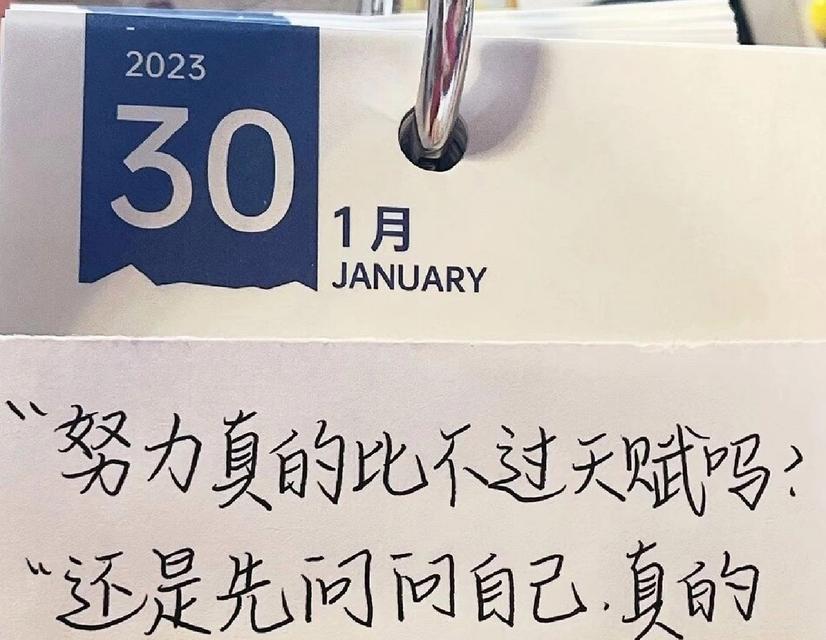 2023
30
1月
JANUARY
“努力真的比不过天赋吗?
“还是先问问自己.真的